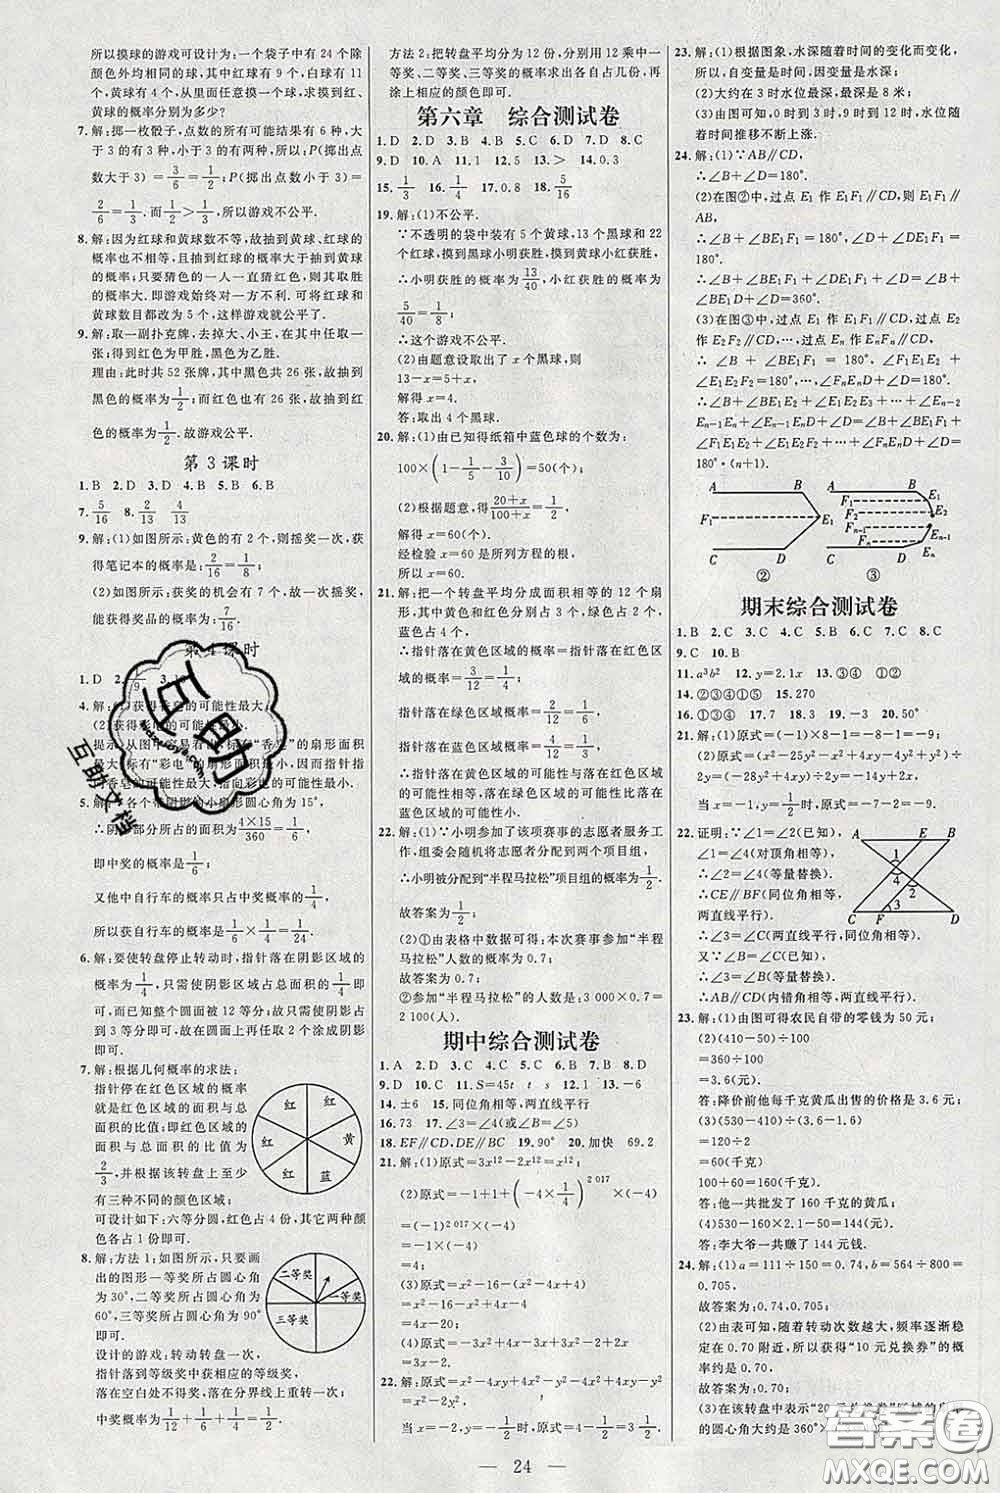 所以摸球的游戏可设计为:一个袋子中有 24 个除
颜色外均相同的球,其中红球有 9 个,白球有 11
个,黄球有 4 个,从里面任意摸一个球,求摸到红、
黄球的概率分别为多少?
7. 解:掷一枚骰子,点数的所有可能结果有 6 种,其
中大于 3 的有 3 种,小于 3 的有 2 种;P(掷出点
数大于 3)=3/6=1/2;P(掷出点数小于 3)=
2/6=1/3.而1/2>1/3,所以游戏不公平.
8. 解:因为红球和黄球数不等,故抽到黄球、红球的
概率也不相等.且抽到红球的概率大于抽到黄球
的概率;只要猜色的一人一直猜红色,则其取胜的
概率大.即游戏始终对一方不利.可将红球和
黄球数目都改为 5 个,这样游戏就公平了.
9. 解:取一副扑克牌,去掉大、小王,在其中任取一
张;得到红色为甲胜,黑色为乙胜.
理由:此时共 52 张牌,其中黑色有 26 张,故抽到
黑色的概率为1/2;而红色也有 26 张,故抽到红
色的概率为1/2.故游戏公平.
第 3 课时
1. B 2. D 3. D 4. D 5. B 6. B
7. 5/16 8. 2/13 4/13
9. 解:(1)如图所示:黄色的有 2 个,则摇奖一次,获
得笔记本的概率是:2/16=1/8;
(2)如图所示:获奖的机会有 7 个,故摇奖一次,
能获得奖品的概率为:7/16.
第 4 课时
1. D
4. 解:(1)获得香皂的可能性最大
5.
各个带阴影的小扇形圆心角为 15°,
部分所占的面积为4×15/360=1/6;
即中奖的概率是1/6;
又他中自行车的概率只占中奖概率的1/4,
所以获自行车的概率是1/6×1/4=1/24.
6. 解:要使转盘停止转动时,指针落在阴影区域的
概率为1/4,只需使阴影区域占总面积的1/4即
可,而已知整个圆面被 12 等分,故只需使阴影部
分有 3 等分即可.故在圆面上再任取 2 个涂成阴影
即可.
7. 解:根据几何概率的求法:
指针停在红色区域的概率
就是红色区域的面积与总
面积的比值;即红色区域的
面积与总面积的比值为
2/3,并根据该转盘上至少
有三种不同的颜色区域;
可设计如下:六等分圆,红色占 4 份,其它两种颜
色各占 1 份即可.
红 红
红 黄
红 蓝
8. 解:方法 1:如图所示,只要画
出的图形一等奖所占圆心角
为 30°,二等奖所占圆心角为
60°,三等奖所占圆心角为 90°
即可.
二等奖
一等奖
三等奖
设计的游戏:转动转盘一次,
指针落到等级奖中获相应的等级奖,
落在空白处不得奖,落在分界线上重转一次;
中奖概率为1/12+1/6+1/4=1/2
方法 2:把转盘平均分为 12 份,分别用 12 乘中一
等奖、二等奖、三等奖的概率求出各自占几份,再
涂上相应的颜色即可.
第六章 综合测试卷
1. D 2. D 3. C 4. B 5. D 6. D 7. D 8. C
9. D 10. A 11. 1 12. 5 13. > 14. 0.3
15. 1/3 16. 1/4 17. 0.8 18. 5/16
19. 解:(1)不公平.
∵不透明的袋中装有 5 个黄球,13 个黑球和 22
个红球,摸到黑球小明获胜,摸到黄球小红获胜,
∴小明获胜的概率为13/40,小红获胜的概率为
5/40=1/8;
∴这个游戏不公平.
(2)由题意设取出了 x 个黑球,则
13-x=5+x,
解得 x=4.
答:取出 4 个黑球.
20. 解:(1)由已知得纸箱中蓝色球的个数为:
100×(1-1/5-3/10)=50(个);
(2)根据题意,得20+x/100+x=1/2,
解得 x=60(个).
经检验 x=60 是所列方程的根.
所以 x=60.
21. 解:把一个转盘平均分成面积相等的 12 个扇
形,其中黄色和红色分别占 3 个,绿色占 2 个,
蓝色占 4 个.
∴指针落在黄色区域的概率=指针落在红色区
域的概率=3/12=1/4,
指针落在绿色区域概率=2/12=1/6,
指针落在蓝色区域概率=4/12=1/3,
∴指针落在黄色区域的可能性与落在红色区域
的可能性相等,落在绿色区域的可能性比落在
蓝色区域的可能性小.
22. 解:(1)∵小明参加了该项赛事的志愿者服务工
作,组委会随机将志愿者分配到两个项目组,
∴小明被分配到“半程马拉松”项目组的概率为1/2.
故答案为1/2;
(2)①由表格中数据可得:本次赛事参加“半程
马拉松”人数的概率为 0.7;
故答案为 0.7;
②参加“半程马拉松”的人数是:3 000×0.7=
2 100(人).
期中综合测试卷
1. A 2. D 3. C 4. C 5. C 6. B 7. B 8. D
9. D 10. C 11. S=45t t s 12. 1 13. -6
14. ±6 15. 同位角相等,两直线平行
16. 73 17. ∠3=∠4(或∠B=∠5)
18. EF∥CD,DE∥BC 19. 90° 20. 加快 69.2
21. 解:(1)原式=3x¹²-2x¹²=x¹²;
(2)原式=-1+1+(-4×1/4)²⁰¹⁷
=(-1)²⁰¹⁷
=-1;
(3)原式=x²-16-(x²-4x+4)
=x²-16-x²+4x-4
=4x-20;
(4)原式=-3x²+4x-x+3x²-2+2x
=5x-2.
22. 解:原式=4x²-4xy+y²-4x²+4xy-y²-y²
=-y²
当 x=-1/2,y=-1/2时,原式=
23. 解:(1)根据图象,水深随着时间的变化而变化,
所以,自变量是时间,因变量是水深;
(2)大约在 3 时水位最深,最深是 8 米;
(3)由图可知,0 时到 3 时,9 时到 12 时,水位随
着时间推移不断上涨.
24. 解:(1)∵AB∥CD,
∴∠B+∠D=180°.
(2)在图②中,过点 E₁ 作 E₁F₁∥CD,则 E₁F₁∥
AB,
∴∠B+∠BE₁F₁=180°,∠D+∠DE₁F₁=
180°.
∴∠B+∠BE₁F₁+∠DE₁F₁+∠D=
∠B+∠BE₁D+∠D=360°.
(3)在图③中,过点 E₁ 作 E₁F₁∥CD,过点 E₂
作 E₂F₂∥CD,…,过点 Eₙ 作 EₙFₙ∥CD,
∴∠B+∠BE₁F₁=180°,∠F₁E₁E₂+
∠E₁E₂F₂=180°,…,∠FₙEₙD+∠D=180°.
∴∠B+∠BE₁E₂+∠E₁E₂E₃+…+∠Eₙ₋₂
Eₙ₋₁Eₙ+∠Eₙ₋₁EₙD+∠D=
180°·(n+1).
A B
F₁ E₁
C D
②
A B
F₁ E₁
F₂ E₂
Fₙ₋₁ Eₙ₋₁
Fₙ Eₙ
C D
③
期末综合测试卷
1. B 2. C 3. C 4. C 5. B 6. C 7. C 8. D
9. C 10. B
11. a³b² 12. y=2.1x 13. ③④ ①②
14. ②③④①⑤ 15. 270
16. ①③④ 17. 7 18. 3 19. -3 20. 50°
21. 解:(1)原式=(-1)×8-1=-8-1=-9;
(2)原式=(x²-25y²-x²+4xy-4y²+y²)÷
2y=(-28y²+4xy)÷2y=-14y+2x,
当 x=-1,y=1/2时,原式=-7-2=-9.
22. 证明:∵∠1=∠2(已知),
∠1=∠4(对顶角相等),
∴∠2=∠4(等量替换).
∴CE∥BF(同位角相等,
两直线平行).
A E B
1
4
2
3
C F D
∴∠3=∠C(两直线平行,同位角相等).
又∵∠B=∠C(已知),
∴∠3=∠B(等量替换).
∴AB∥CD(内错角相等,两直线平行).
23. 解:(1)由图可得农民自带的零钱为 50 元;
(2)(410-50)÷100
=360÷100
=3.6(元).
答:降价前他每千克黄瓜出售的价格是 3.6 元;
(3)(530-410)÷(3.6-1.6)
=120÷2
=60(千克)
100+60=160(千克).
答:他一共批发了 160 千克的黄瓜;
(4)530-160×2.1-50=144(元).
答:李大爷一共赚了 144 元钱.
24. 解:(1)a=111÷150=0.74,b=564÷800=
0.705.
故答案为:0.74,0.705;
(2)由表可知,随着转动次数越大,频率逐渐稳
定在 0.70 附近,所以获得“10 元兑换券”的概
率约是 0.70.
故答案为:0.70;
(3)在该转盘中表示“20
的圆心角大约是 360°
24
互助
互助文档
答案圈
MXQE.COM